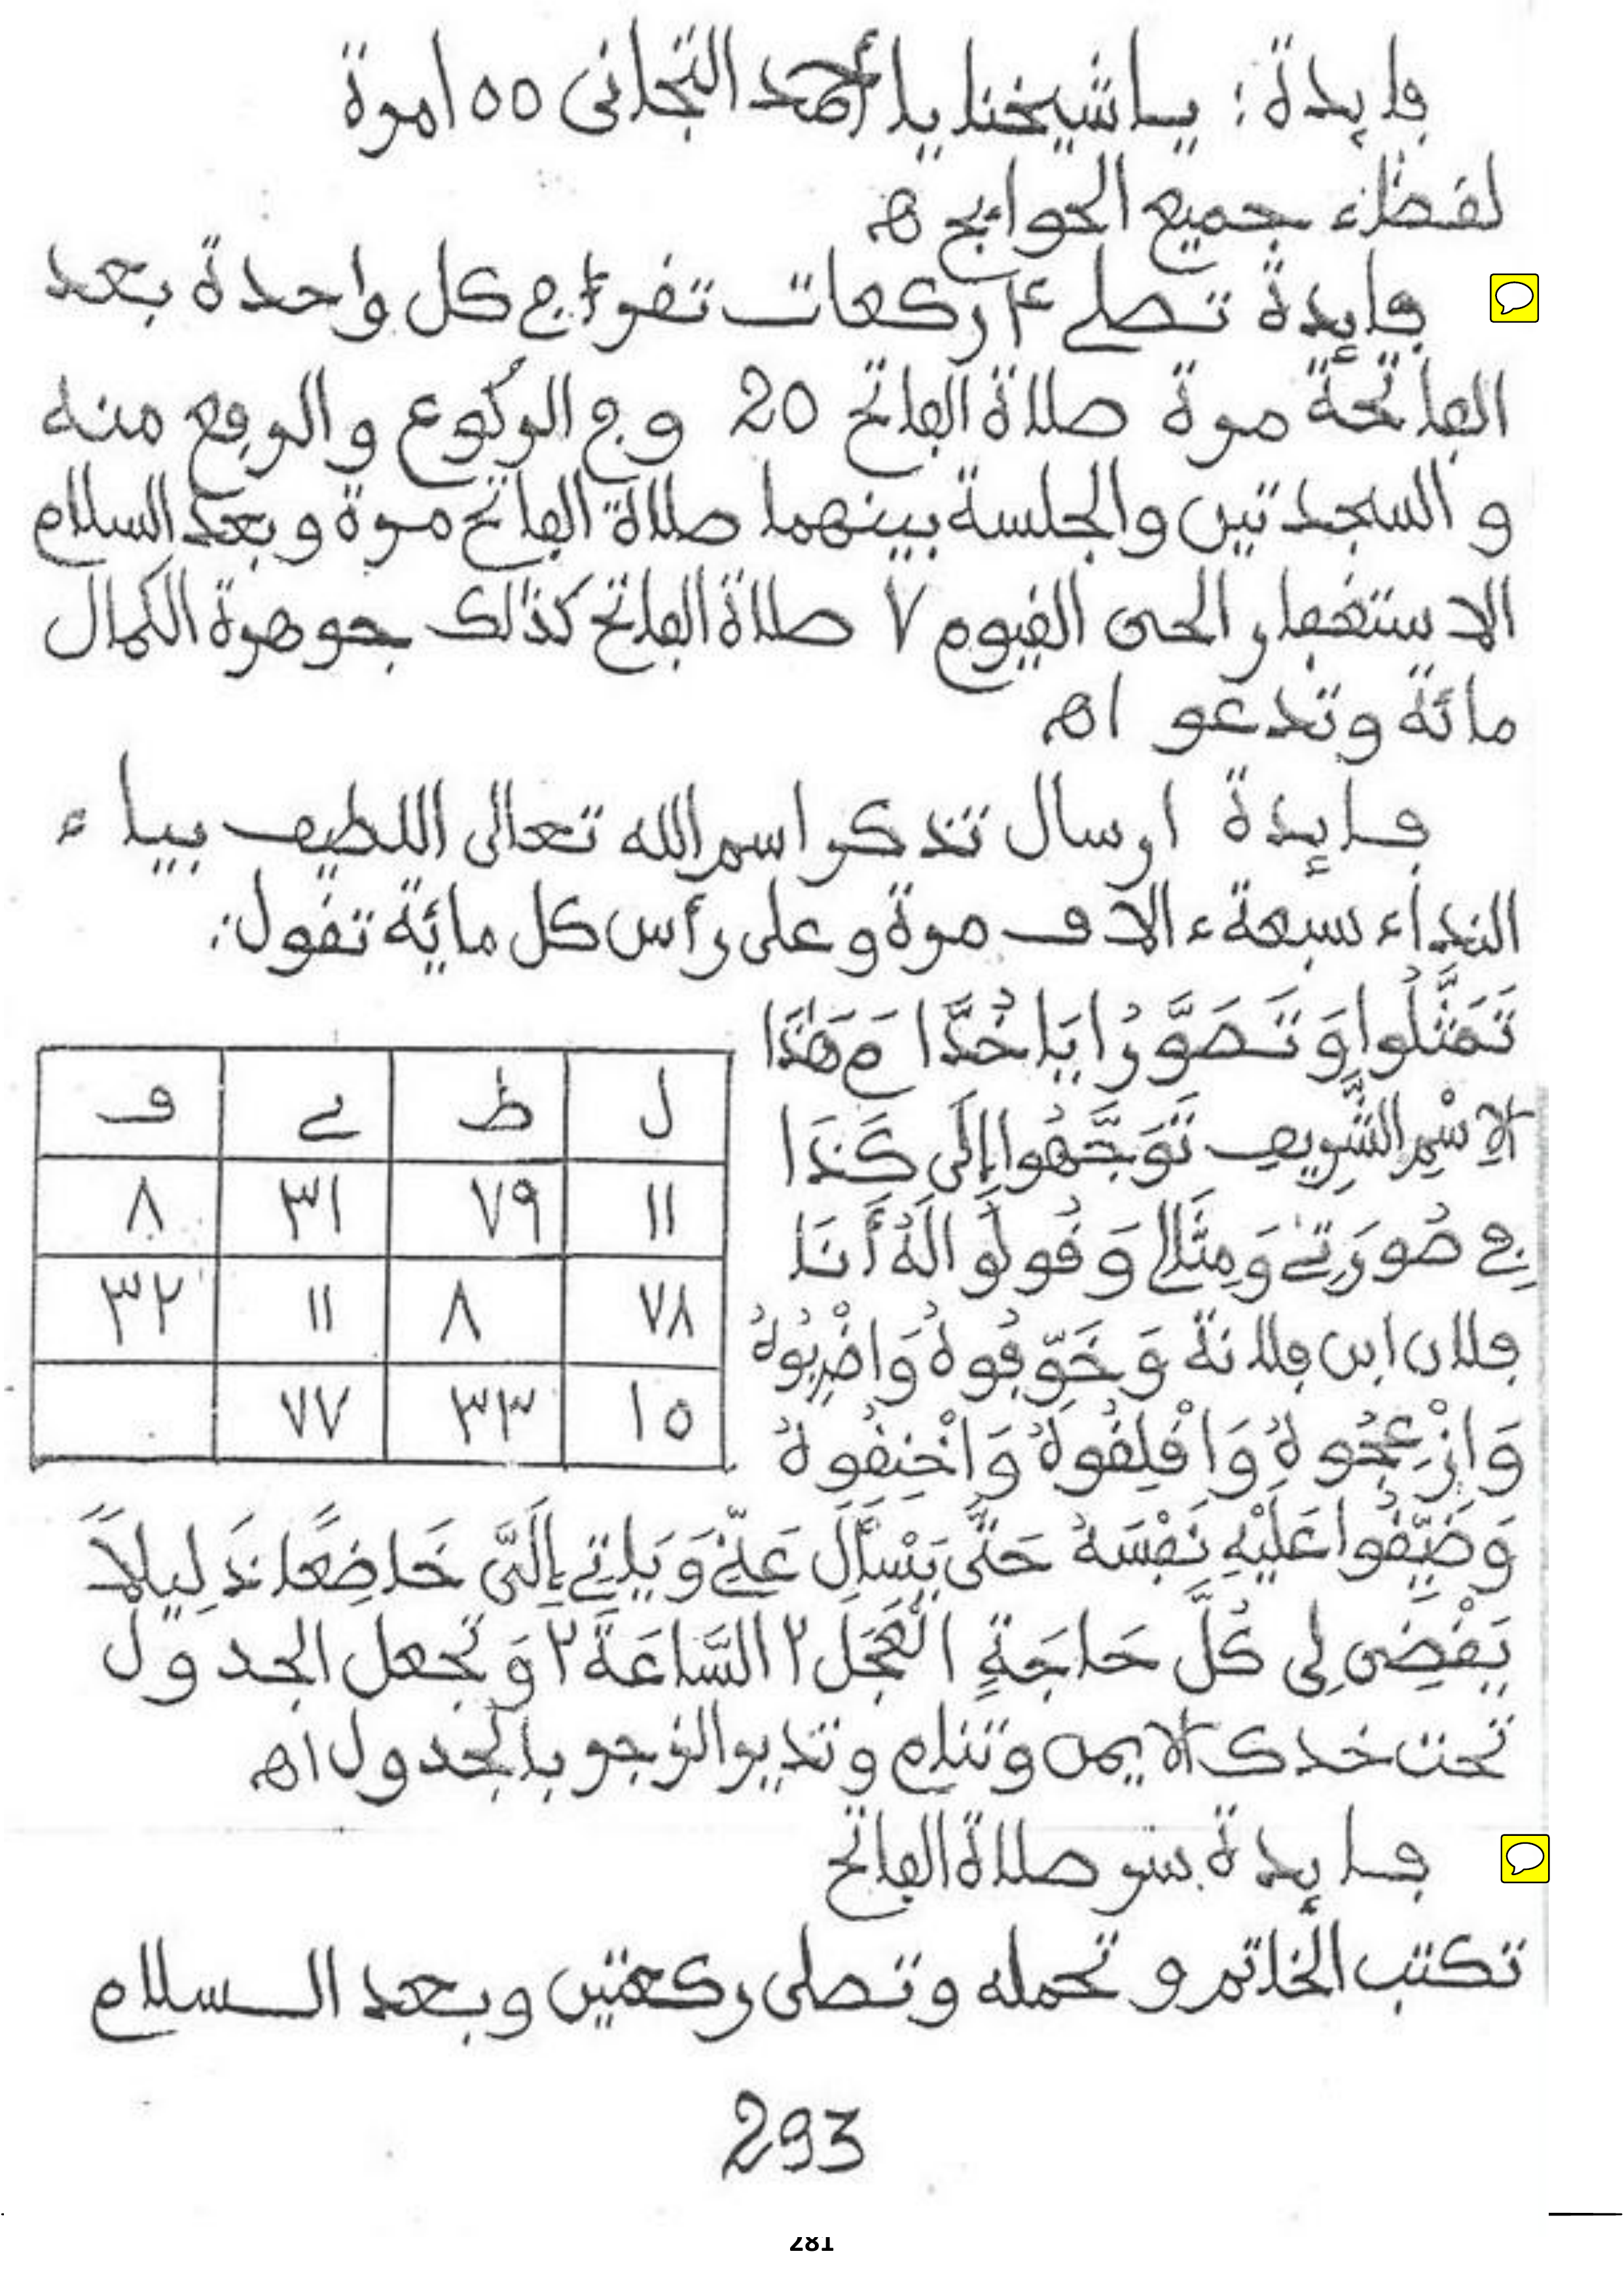 فايدة: يا شيخنا يا أحمد التجانى ١٥٥ مرة
لقضاء جميع الحوايج اه
فايدة تصلى ٤ ركعات تقرأ في كل واحدة بعد
الفاتحة مرة صلاة الفاتح 20 وفي الركوع والرفع منه
والسجدتين والجلسة بينهما صلاة الفاتح مرة وبعد السلام
الاستغفار الحى القيوم ٧ صلاة الفاتح كذلك جوهرة الكمال
مائة وتدعو اه
فايدة ارسال تذكر اسم الله تعالى اللطيف بياء
النداء سبعة ءالاف مرة وعلى رأس كل مائة تقول:
تَمَثَّلُوا وَتَصَوَّرُا يَا خُدَّامَ هَذَا
الاِسْمِ الشَّرِيفِ تَوَجَّهُوا إِلَى كَذَا
فِي صُورَتِي وَمِثَالِي وَقُولُوا لَهُ أَنَا
فلان ابن فلانة وَخَوِّفُوهُ وَاضْرِبُوهُ
وَازْعِجُوهُ وَاقْلِقُوهُ وَاخْنِقُوهُ
وَضَيِّقُوا عَلَيْهِ نَفْسَهُ حَتَّى يَسْأَلَ عَنِّي وَيَاتِي إِلَيَّ خَاضِعًا ذَلِيلاً
يَقْضِى لِى كُلَّ حَاجَةٍ الْعَجَلَ ٢ السَّاعَةَ ٢ وَتجعل الجدول
تحت خدك الايمن وتنام وتدير الزجر بالجدول اه
ل ط ي ف
١١ ٧٩ ٣١ ٨
٧٨ ٨ ١١ ٣٢
١٥ ٣٣ ٧٧
فايدة سر صلاة الفاتح
تكتب الخاتم وتحمله وتصلى ركعتين وبعد السلام
293
281